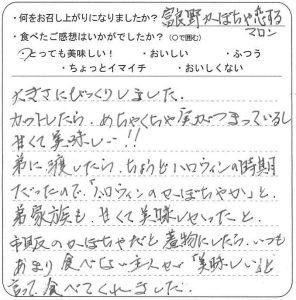 ・何をお召し上がりになりましたか？ 富良野かぼちゃ恋する
マロン
・食べたご感想はいかがでしたか？（○で囲む）
・とっても美味しい！ ・おいしい ・ふつう
・ちょっとイマイチ ・おいしくない
大きさにびっくりしました。
カットしたら、めちゃくちゃ実がつまっているし
甘くて美味しい!!
弟に渡したら、ちょうどハロウィンの時期
だったので、「ハロウィンのかぼちゃか」と、
弟家族も、甘くて美味しかったと、
市販のかぼちゃだと煮物にしたら、いつも
あまり食べない主人が「美味しい」と
言って食べてくれました。